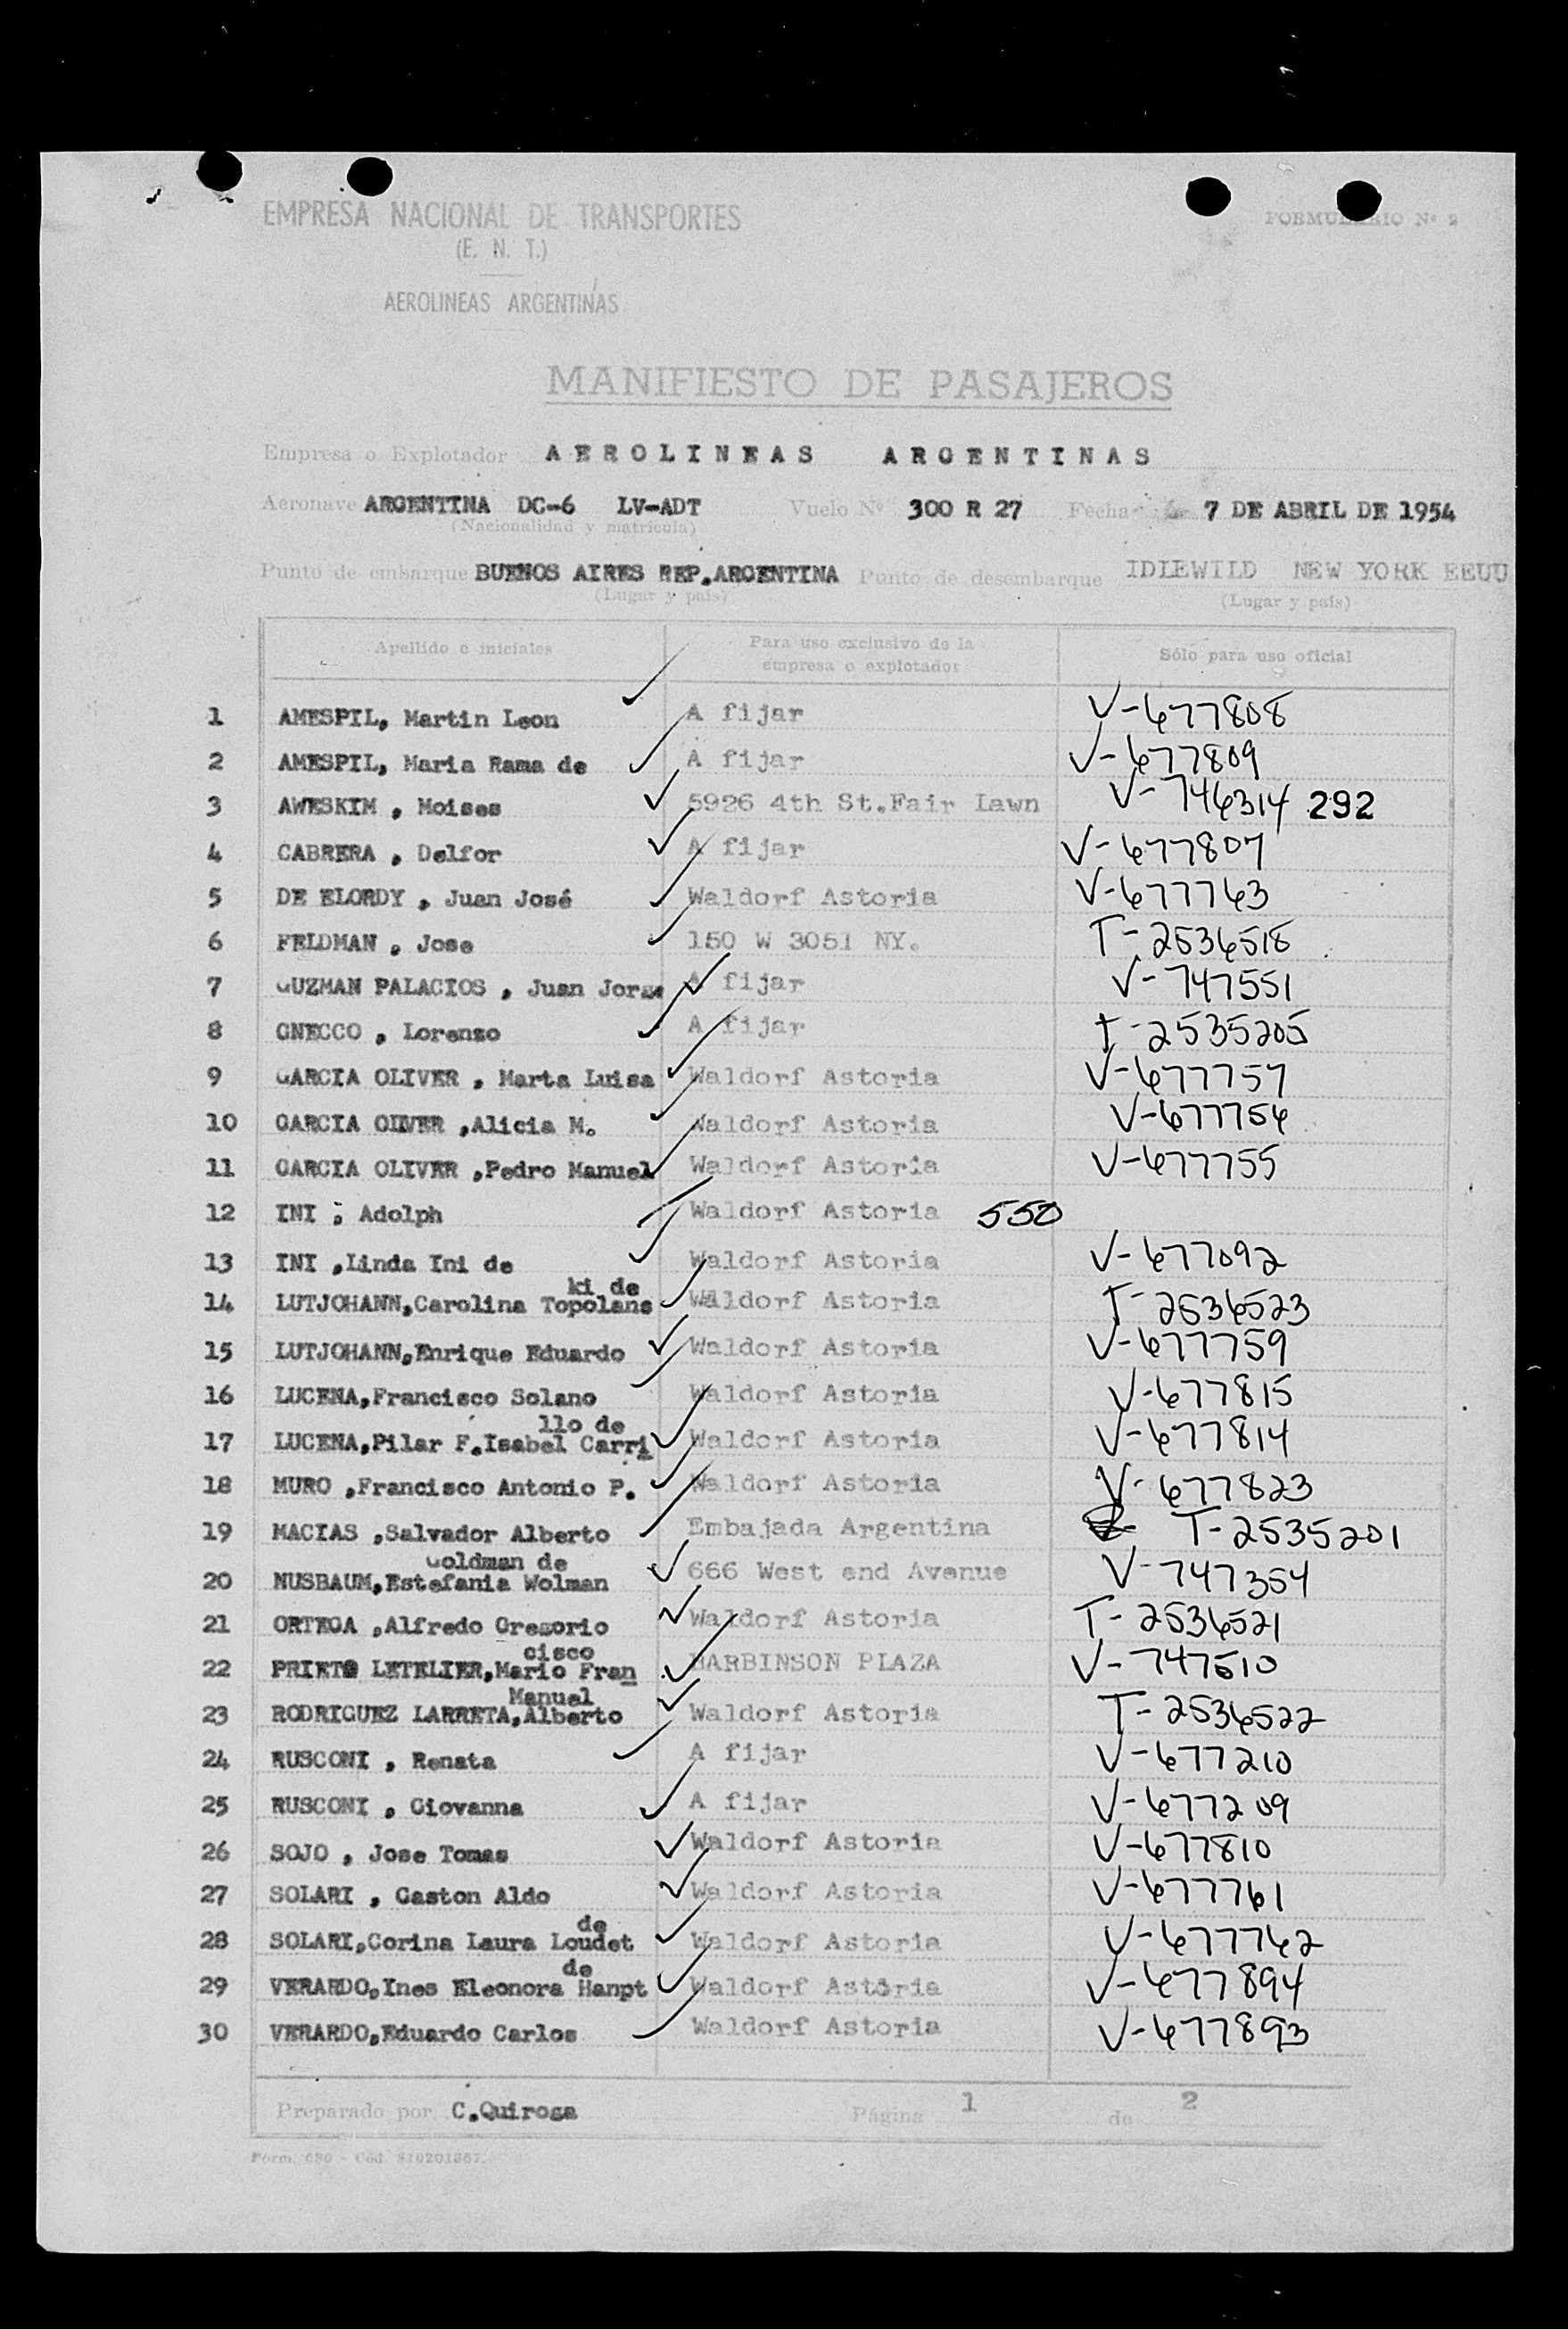 EMPRESA NACIONAL DE TRANSPORTES
(E. N. T.)
AEROLINEAS ARGENTINAS
FORMULARIO Nº 2
MANIFIESTO DE PASAJEROS
Empresa o Explotador AEROLINEAS ARGENTINAS
Aeronave ARGENTINA DC-6 LV-ADT Vuelo Nº 300 R 27 Fecha 7 DE ABRIL DE 1954
(Nacionalidad y matrícula)
Punto de embarque BUENOS AIRES REP.ARGENTINA Punto de desembarque IDLEWILD NEW YORK EEUU
(Lugar y país) (Lugar y país)
Apellido e iniciales Para uso exclusivo de la empresa o explotador Sólo para uso oficial
1 AMESPIL, Martin Leon A fijar V-677808
2 AMESPIL, Maria Rama de A fijar V-677809
3 AWESKIM , Moises 5926 4th St.Fair Lawn V-746314 292
4 CABRERA , Delfor A fijar V-677807
5 DE ELORDY , Juan José Waldorf Astoria V-677763
6 FELDMAN , Jose 150 W 3051 NY. T-2536518
7 GUZMAN PALACIOS , Juan Jorge A fijar V-747551
8 GNECCO , Lorenzo A fijar T-2535205
9 GARCIA OLIVER , Marta Luisa Waldorf Astoria V-677757
10 GARCIA OLIVER ,Alicia M. Waldorf Astoria V-677756
11 GARCIA OLIVER ,Pedro Manuel Waldorf Astoria V-677755
12 INI , Adolph Waldorf Astoria 550
13 INI ,Linda Ini de Waldorf Astoria V-677092
ki de
14 LUTJOHANN,Carolina Topolans Waldorf Astoria T-2536523
15 LUTJOHANN,Enrique Eduardo Waldorf Astoria V-677759
16 LUCENA,Francisco Solano Waldorf Astoria V-677815
llo de
17 LUCENA,Pilar F.Isabel Carri Waldorf Astoria V-677814
18 MURO ,Francisco Antonio P. Waldorf Astoria V-677823
19 MACIAS ,Salvador Alberto Embajada Argentina T-2535201
Goldman de
20 NUSBAUM,Estefania Wolman 666 West end Avenue V-747354
21 ORTEGA ,Alfredo Gregorio Waldorf Astoria T-2536521
cisco
22 PRIETO LETELIER,Mario Fran BARBINSON PLAZA V-747510
Manuel
23 RODRIGUEZ LARRETA,Alberto Waldorf Astoria T-2536522
24 RUSCONI , Renata A fijar V-677210
25 RUSCONI , Giovanna A fijar V-677209
26 SOJO , Jose Tomas Waldorf Astoria V-677810
27 SOLARI , Gaston Aldo Waldorf Astoria V-677761
de
28 SOLARI,Corina Laura Loudet Waldorf Astoria V-677762
de
29 VERARDO,Ines Eleonora Hanpt Waldorf Astoria V-677894
30 VERARDO,Eduardo Carlos Waldorf Astoria V-677893
Preparado por C.Quiroga Página 1 de 2
Form. 680 - Cód. 810201867.